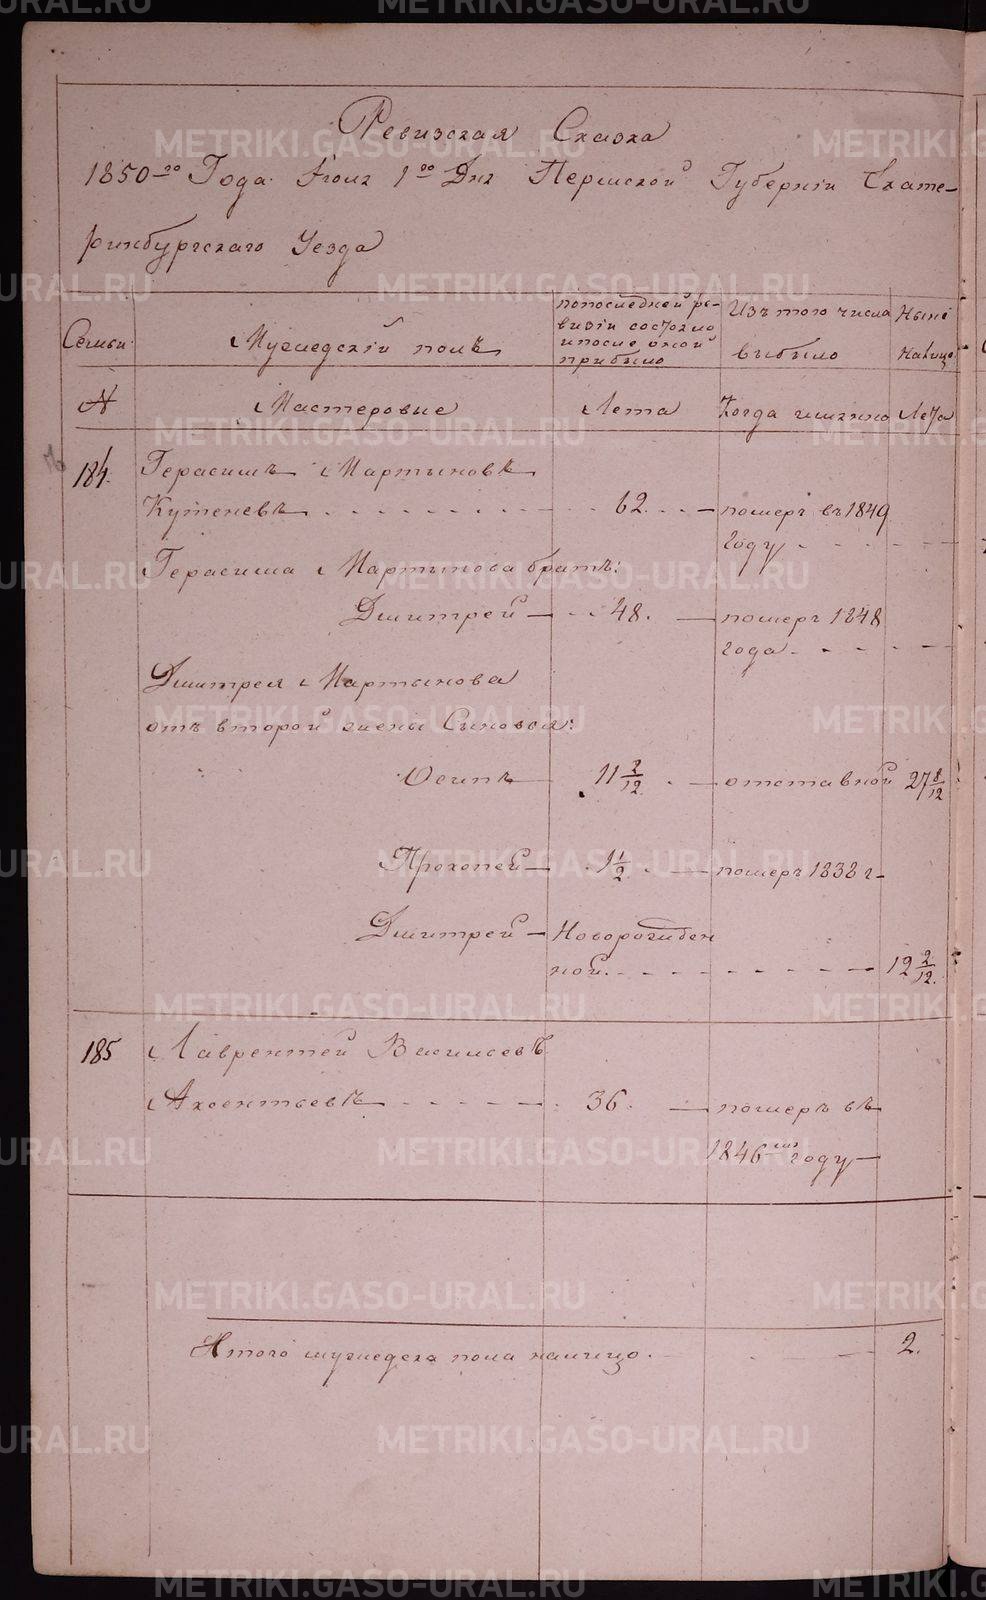 Ревизская Сказка
1850-го Года Июня 1го Дня Пермской Губерніи Екате-
ринбургскаго Уезда
Семьи Мужедскій полъ попоследней ре- визіи состояло ипосле оной прибыло Изъ того числа выбыло Ныне налицо
N Мастеровые Лета Когда имянно Лета
184. Герасимъ Мартыновъ
Кутеневъ 62. помер въ 1849
году
Герасима Мартынова братъ:
Дмитрей 48. помер 1848
года
Дмитрея Мартынова
отъ второй жены Сыновья:
Осипъ 11 2/12 отставной 27 8/12
Прокопей 1 1/2 помер 1838 г
Дмитрей Новорожден
ной. 12 2/12.
185 Лаврентей Васильевъ
Аксентьевъ 36. померъ въ
1846мъ году
Итого мужедска пола налицо. 2.
METRIKI.GASO-URAL.RU